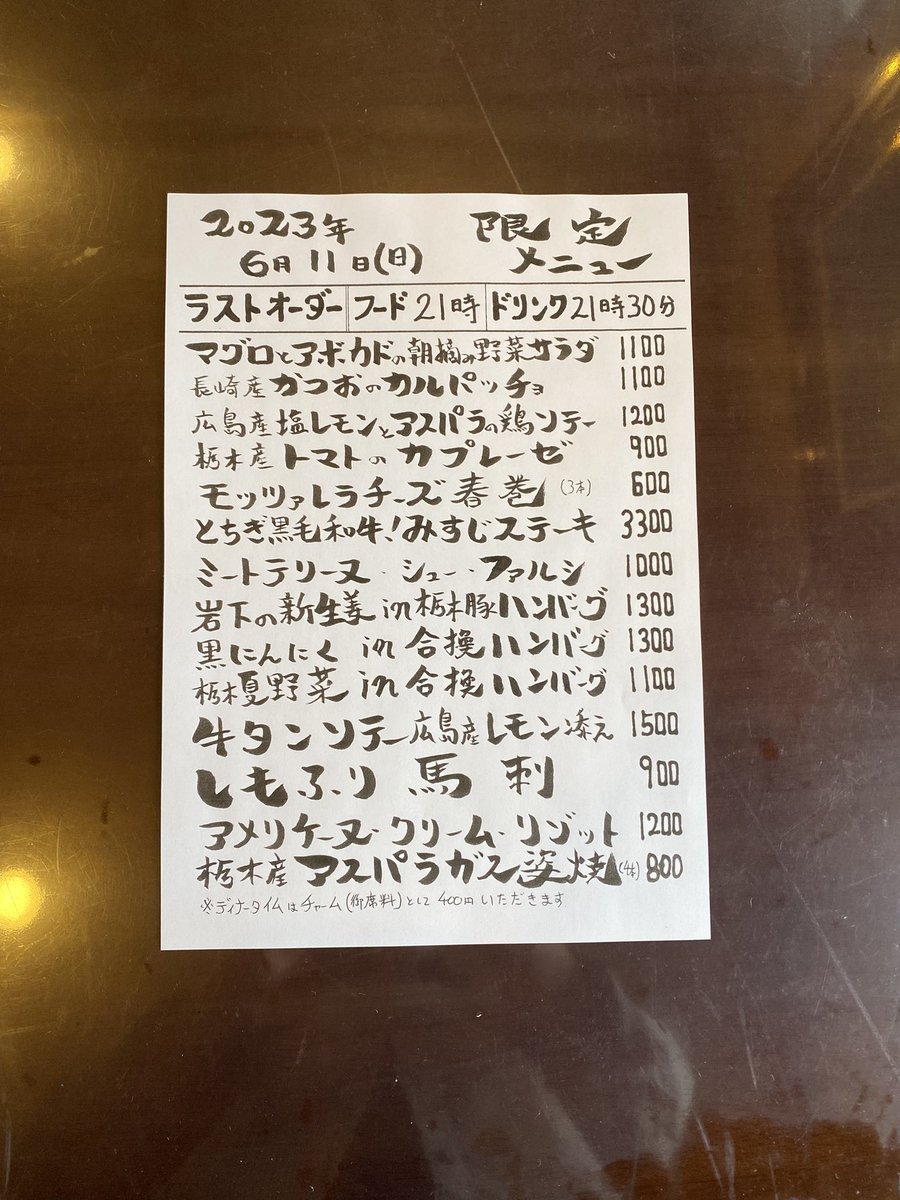 2023年 限定
6月11日(日) メニュー
ラストオーダー フード21時 ドリンク21時30分
マグロとアボカドの朝摘み野菜サラダ 1100
長崎産かつおのカルパッチョ 1100
広島産塩レモンとアスパラの鶏ソテー 1200
栃木産トマトのカプレーゼ 900
モッツァレラチーズ春巻(3本) 600
とちぎ黒毛和牛!みすじステーキ 3300
ミートテリーヌ・シュー・ファルシ 1000
岩下の新生姜in栃木豚ハンバーグ 1300
黒にんにくin合挽ハンバーグ 1300
栃木夏野菜in合挽ハンバーグ 1100
牛タンソテー広島産レモン添え 1500
しもふり馬刺 900
アメリケーヌ・クリーム・リゾット 1200
栃木産アスパラガス姿焼(4本) 800
※ディナータイムはチャーム(御席料)として400円いただきます